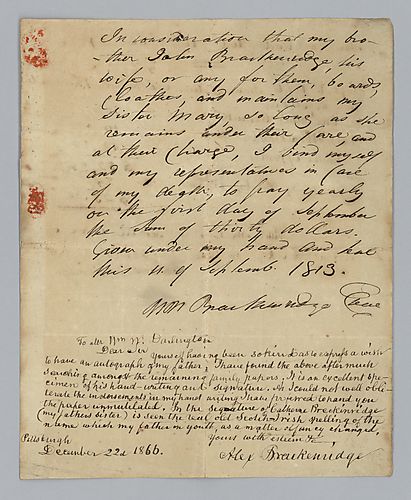 In consideration that my bro-
-ther John Brackenridge, his
wife, or any for them, boards,
Cloathes, and maintains my
Sister Mary, so long as she
remains under their care, and
at their Charge, I bind myself
and my representatives in Case
of my death, to pay yearly
on the first day of September
the Sum of thirty dollars.
Given under my hand and seal
this 11 of Septemb. 1813.
Brackenridge
To Mr. Wm M. Darlington
Dear Sir Yourself having been so kind as to express a wish
to have an autograph of my father, I have found the above after much
searching amongst the remaining family papers. It is an excellent spe-
cimen of his hand-writing and signature. As I could not well obli-
terate the indorsements in my hand writing I have preferred to hand you
the paper unmutilated. In the signature of Catharine Brackenridge
(my father's sister) is seen the real old Scotch & Irish spelling of the
name which my father in youth, as a matter of fancy changed,
Yours with esteem &c,
Pittsburgh
December 22d 1866.
Alex Brackenridge